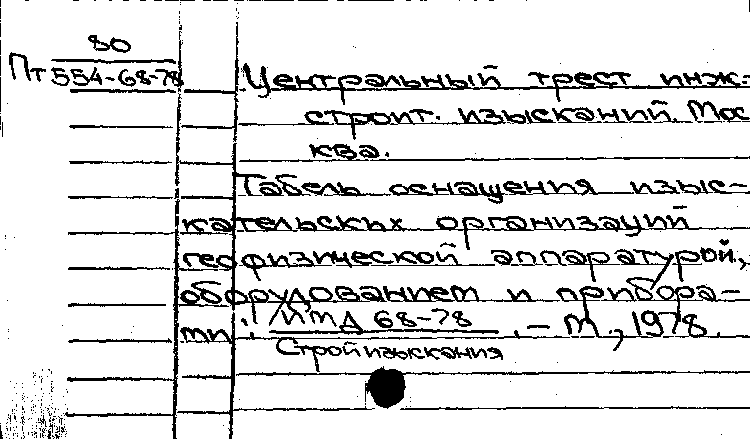 80
Пт 554-68-78
Центральный трест инж.-
строит. изысканий. Мос
ква.
Табель оснащения изыс-
кательских организаций
геофизической аппаратурой,
оборудованием и прибора-
ми: ИТД 68-78 . – М., 1978.
Стройизыскания